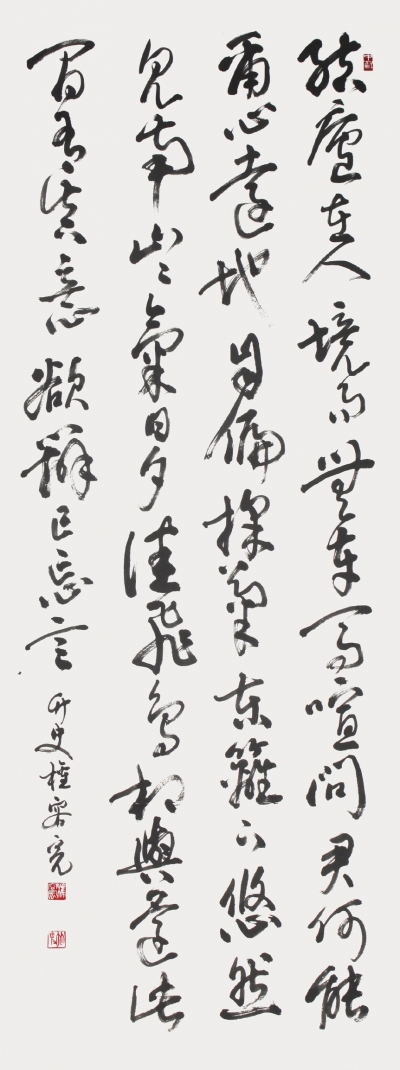 結廬在人境而無車馬喧問君何能
爾心遠地自偏採菊東籬下悠然
見南山〻氣日夕佳飛鳥相與還此
間有眞意欲辨已忘言 竹史權完